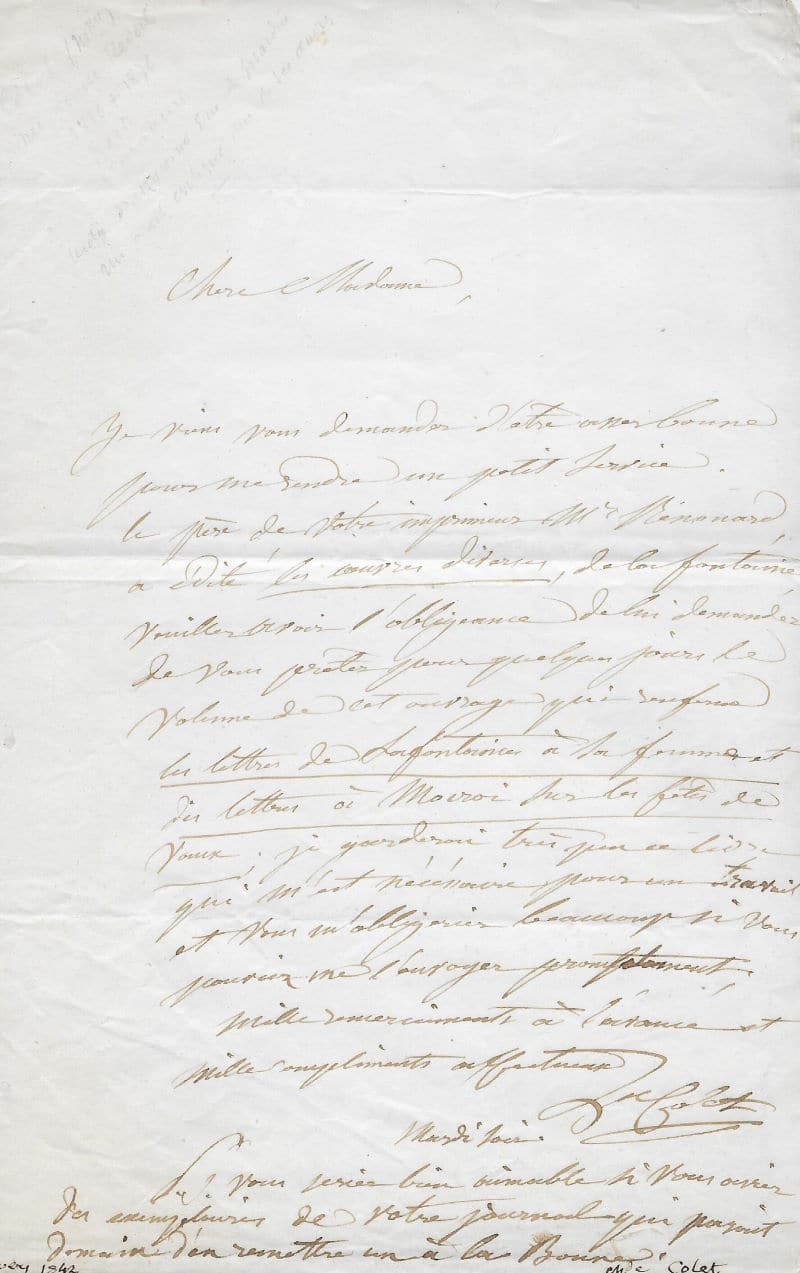 Chere Madame,
Je viens vous demander d'être assez bonne
pour me rendre un petit service.
le père de votre imprimeur Mr Rénouard,
a édité les œuvres diverses, de la fontaine,
veuillez avoir l'obligeance de lui demander
de vous prêter pour quelques jours le
volume de cet ouvrage qui renferme
les lettres de Lafontaine à sa femme et
des lettres à Maucroi sur les fêtes de
Vaux, je garderai très peu ce livre
qui m'est nécéssaire pour un travail
et vous m'obligeriez beaucoup si vous
pouviez me l'envoyer promptement,
mille remerciments à l'avance et
mille compliments affectueux
Lse Colet
Mardi soir.
vous seriez bien aimable si vous aviez
des exemplaires de votre journal qui parait
demain d'en remettre un à la Bonne.
1842
Mde Colet